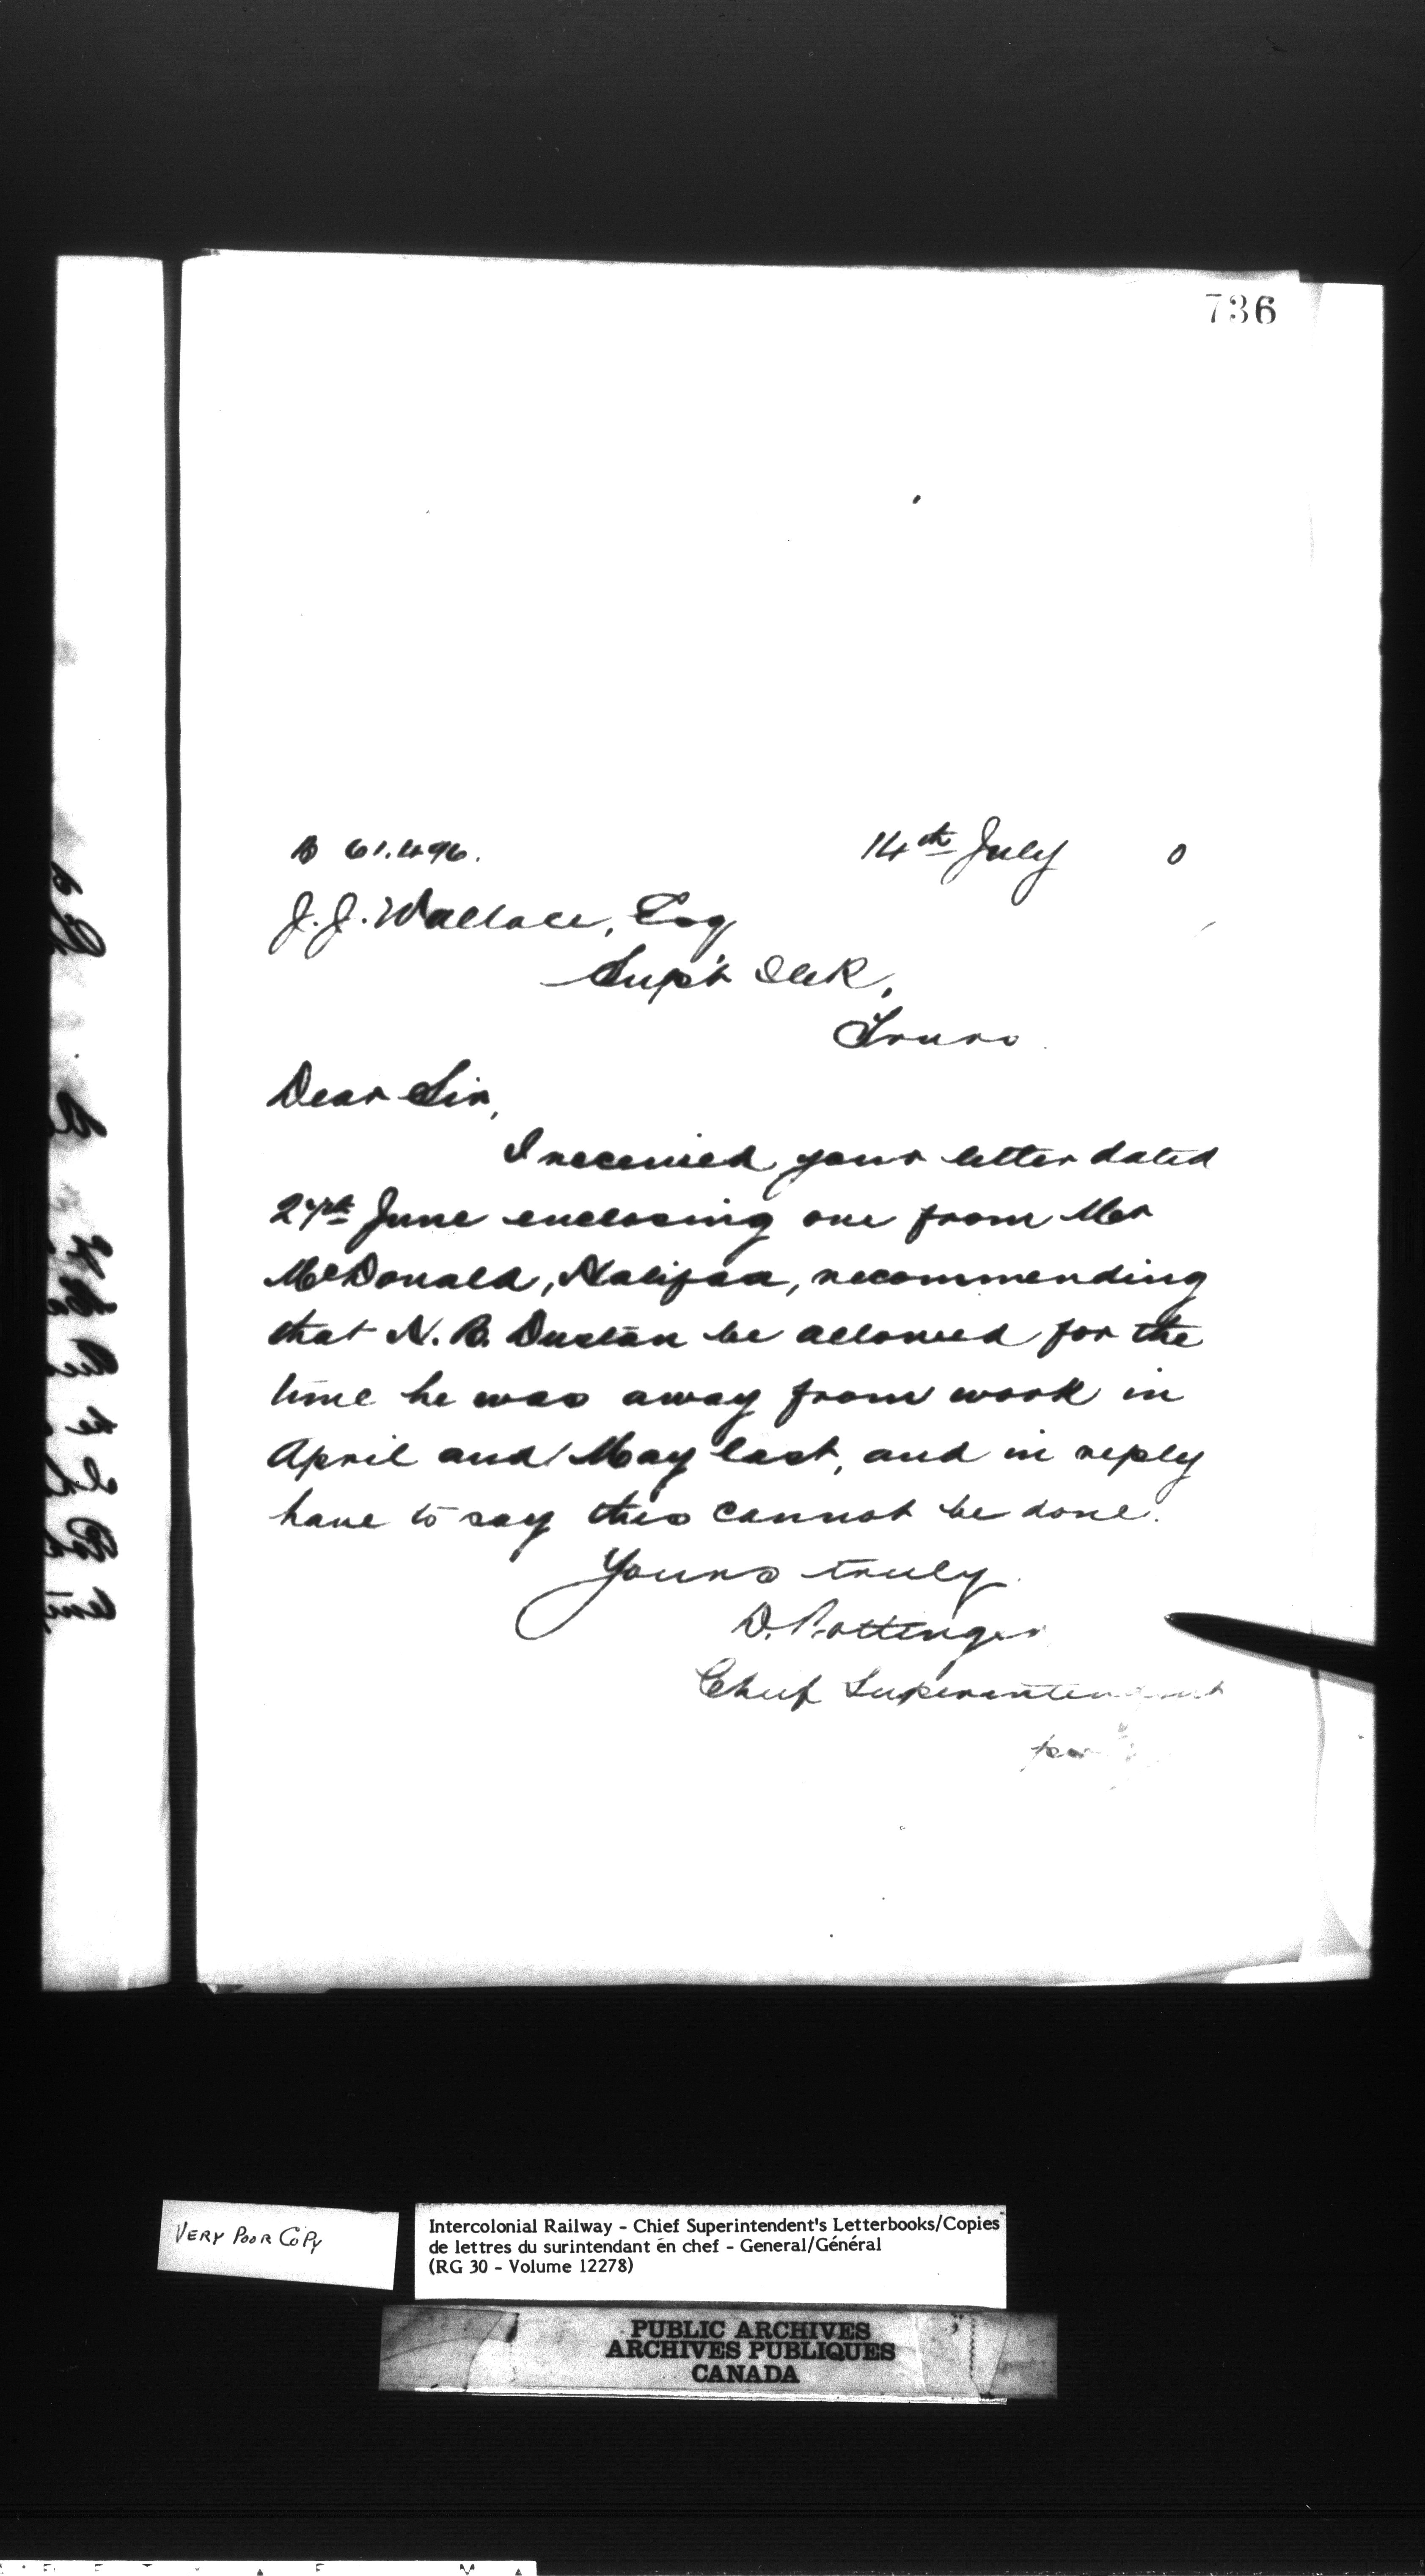 736
B 61.496.
14th July 0
J. J. Wallace, Esq
Sup't ICR,
Truro
Dear Sir,
I received your letter dated
27th June enclosing one from Mr
McDonald, Halifax, recommending
that N. B. Dustan be allowed for the
time he was away from work in
April and May last, and in reply
have to say this cannot be done.
Yours truly
D. Pottinger
Chief Superintendent
per
VERY POOR COPY
Intercolonial Railway - Chief Superintendent's Letterbooks/Copies
de lettres du surintendant en chef - General/Général
(RG 30 - Volume 12278)
PUBLIC ARCHIVES
ARCHIVES PUBLIQUES
CANADA